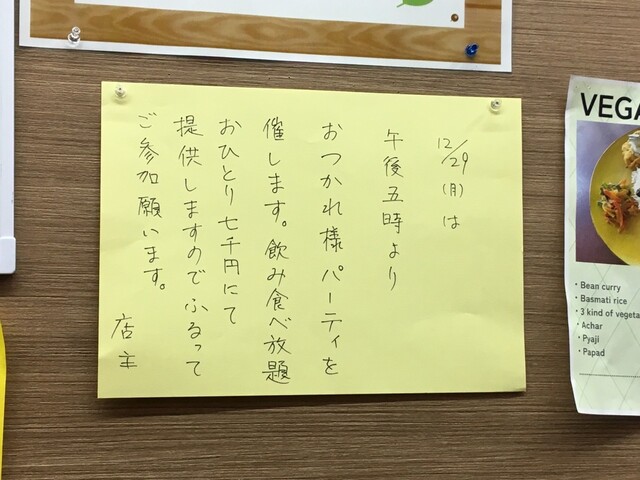 12/29(月)は
午後五時より
おつかれ様パーティを
催します。飲み食べ放題
おひとり七千円にて
提供しますのでふるって
ご参加願います。
店主
VEGA
・Bean curry
・Basmati rice
・3 kind of vegeta
・Achar
・Pyaji
・Papad